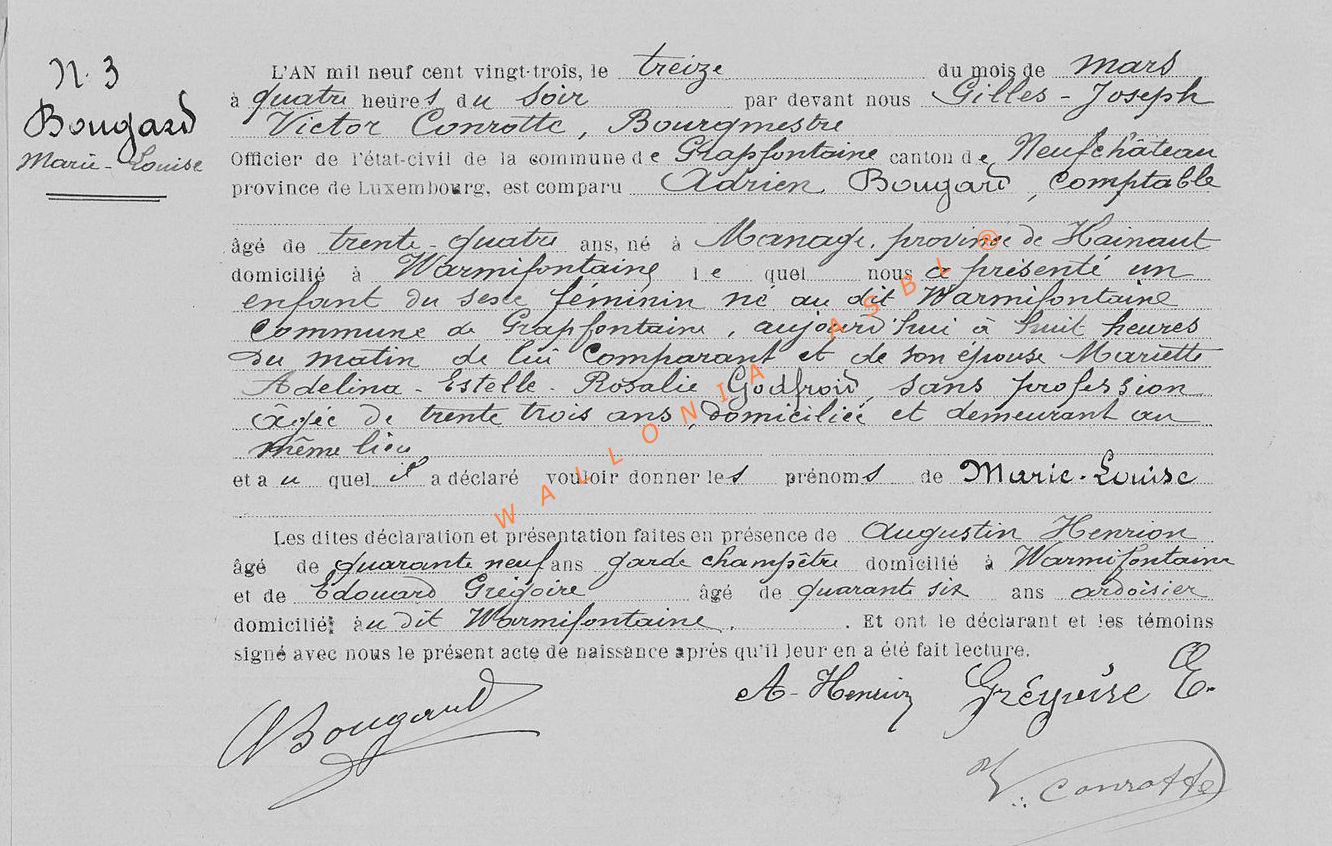 N. 3
Bougard
Marie-Louise
L'AN mil neuf cent vingt-trois, le treize du mois de mars
à quatre heures du soir par devant nous Gilles-Joseph
Victor Conrotte, Bourgmestre
Officier de l'état-civil de la commune de Grapfontaine canton de Neufchâteau
province de Luxembourg, est comparu Adrien Bougard, comptable
âgé de trente-quatre ans, né à Manage, province de Hainaut
domicilié à Warmifontaine le quel nous a présenté un
enfant du sexe féminin né au dit Warmifontaine
commune de Grapfontaine, aujourd'hui à huit heures
du matin de lui comparant et de son épouse Mariette
Adelina-Estelle-Rosalie Godfroid, sans profession
agée de trente trois ans, domiciliée et demeurant au
même lieu
et au quel il a déclaré vouloir donner les prénoms de Marie-Louise
Les dites déclaration et présentation faites en présence de Augustin Henrion
âgé de quarante neuf ans garde champêtre domicilié à Warmifontaine
et de Edouard Grégoire âgé de quarante six ans ardoisier
domicilié au dit Warmifontaine. . Et ont le déclarant et les témoins
signé avec nous le présent acte de naissance après qu'il leur en a été fait lecture.
ABougard
A-Henrion
Grégoire E.
V. Conrotte
WALLONIA ASBL ®